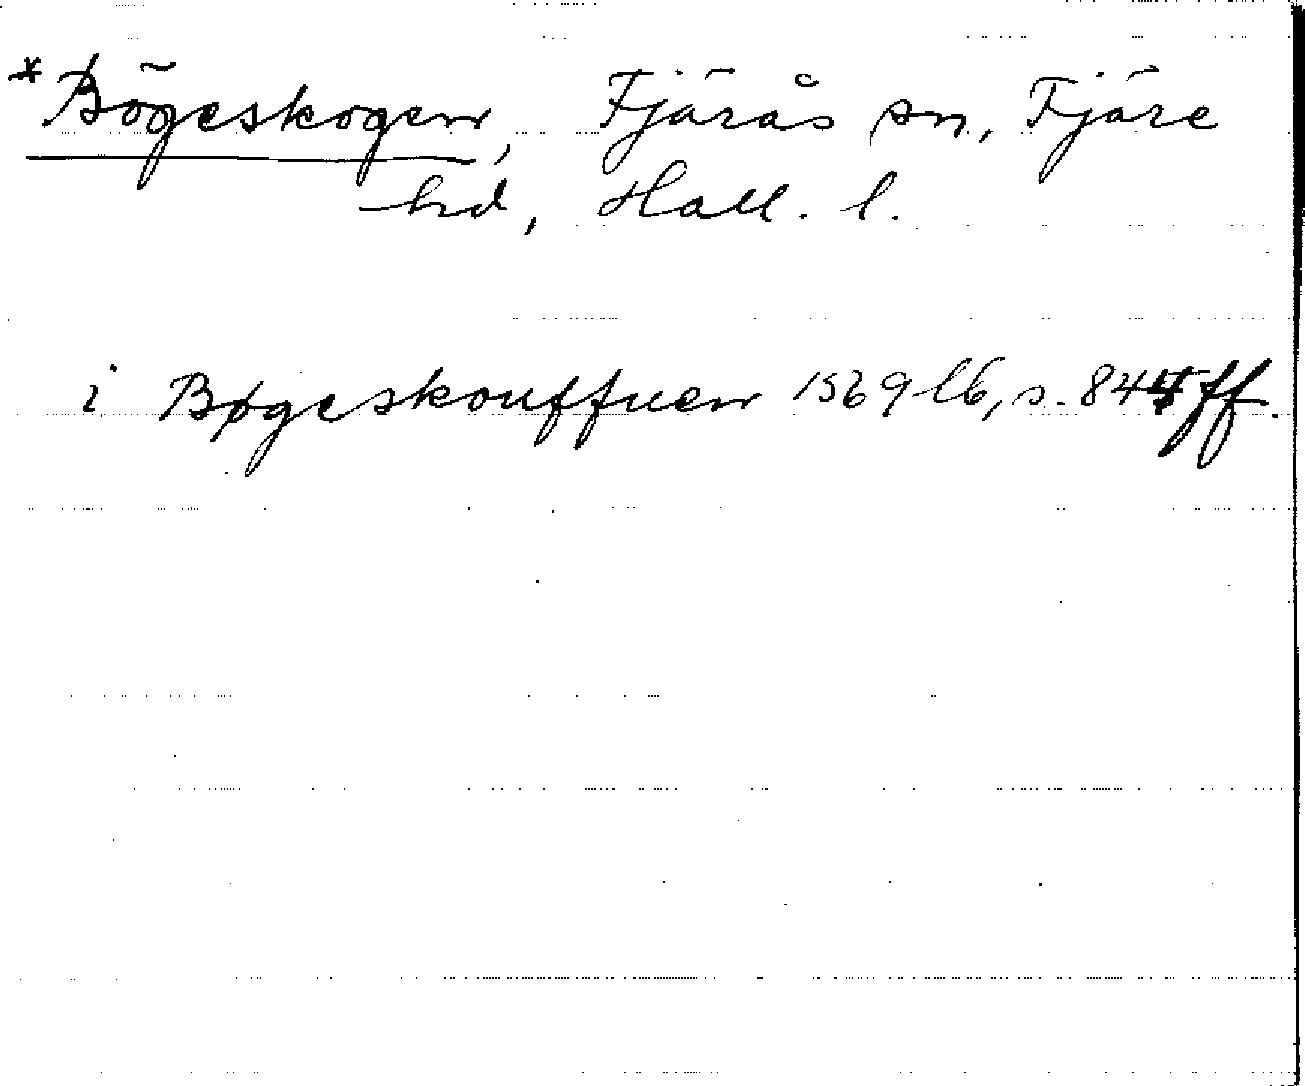 *Bögeskogen, Fjärås sn, Fjäre
hd, Hall. l.
i Bøgeskouffuen 1569 lb, s. 844 ff.